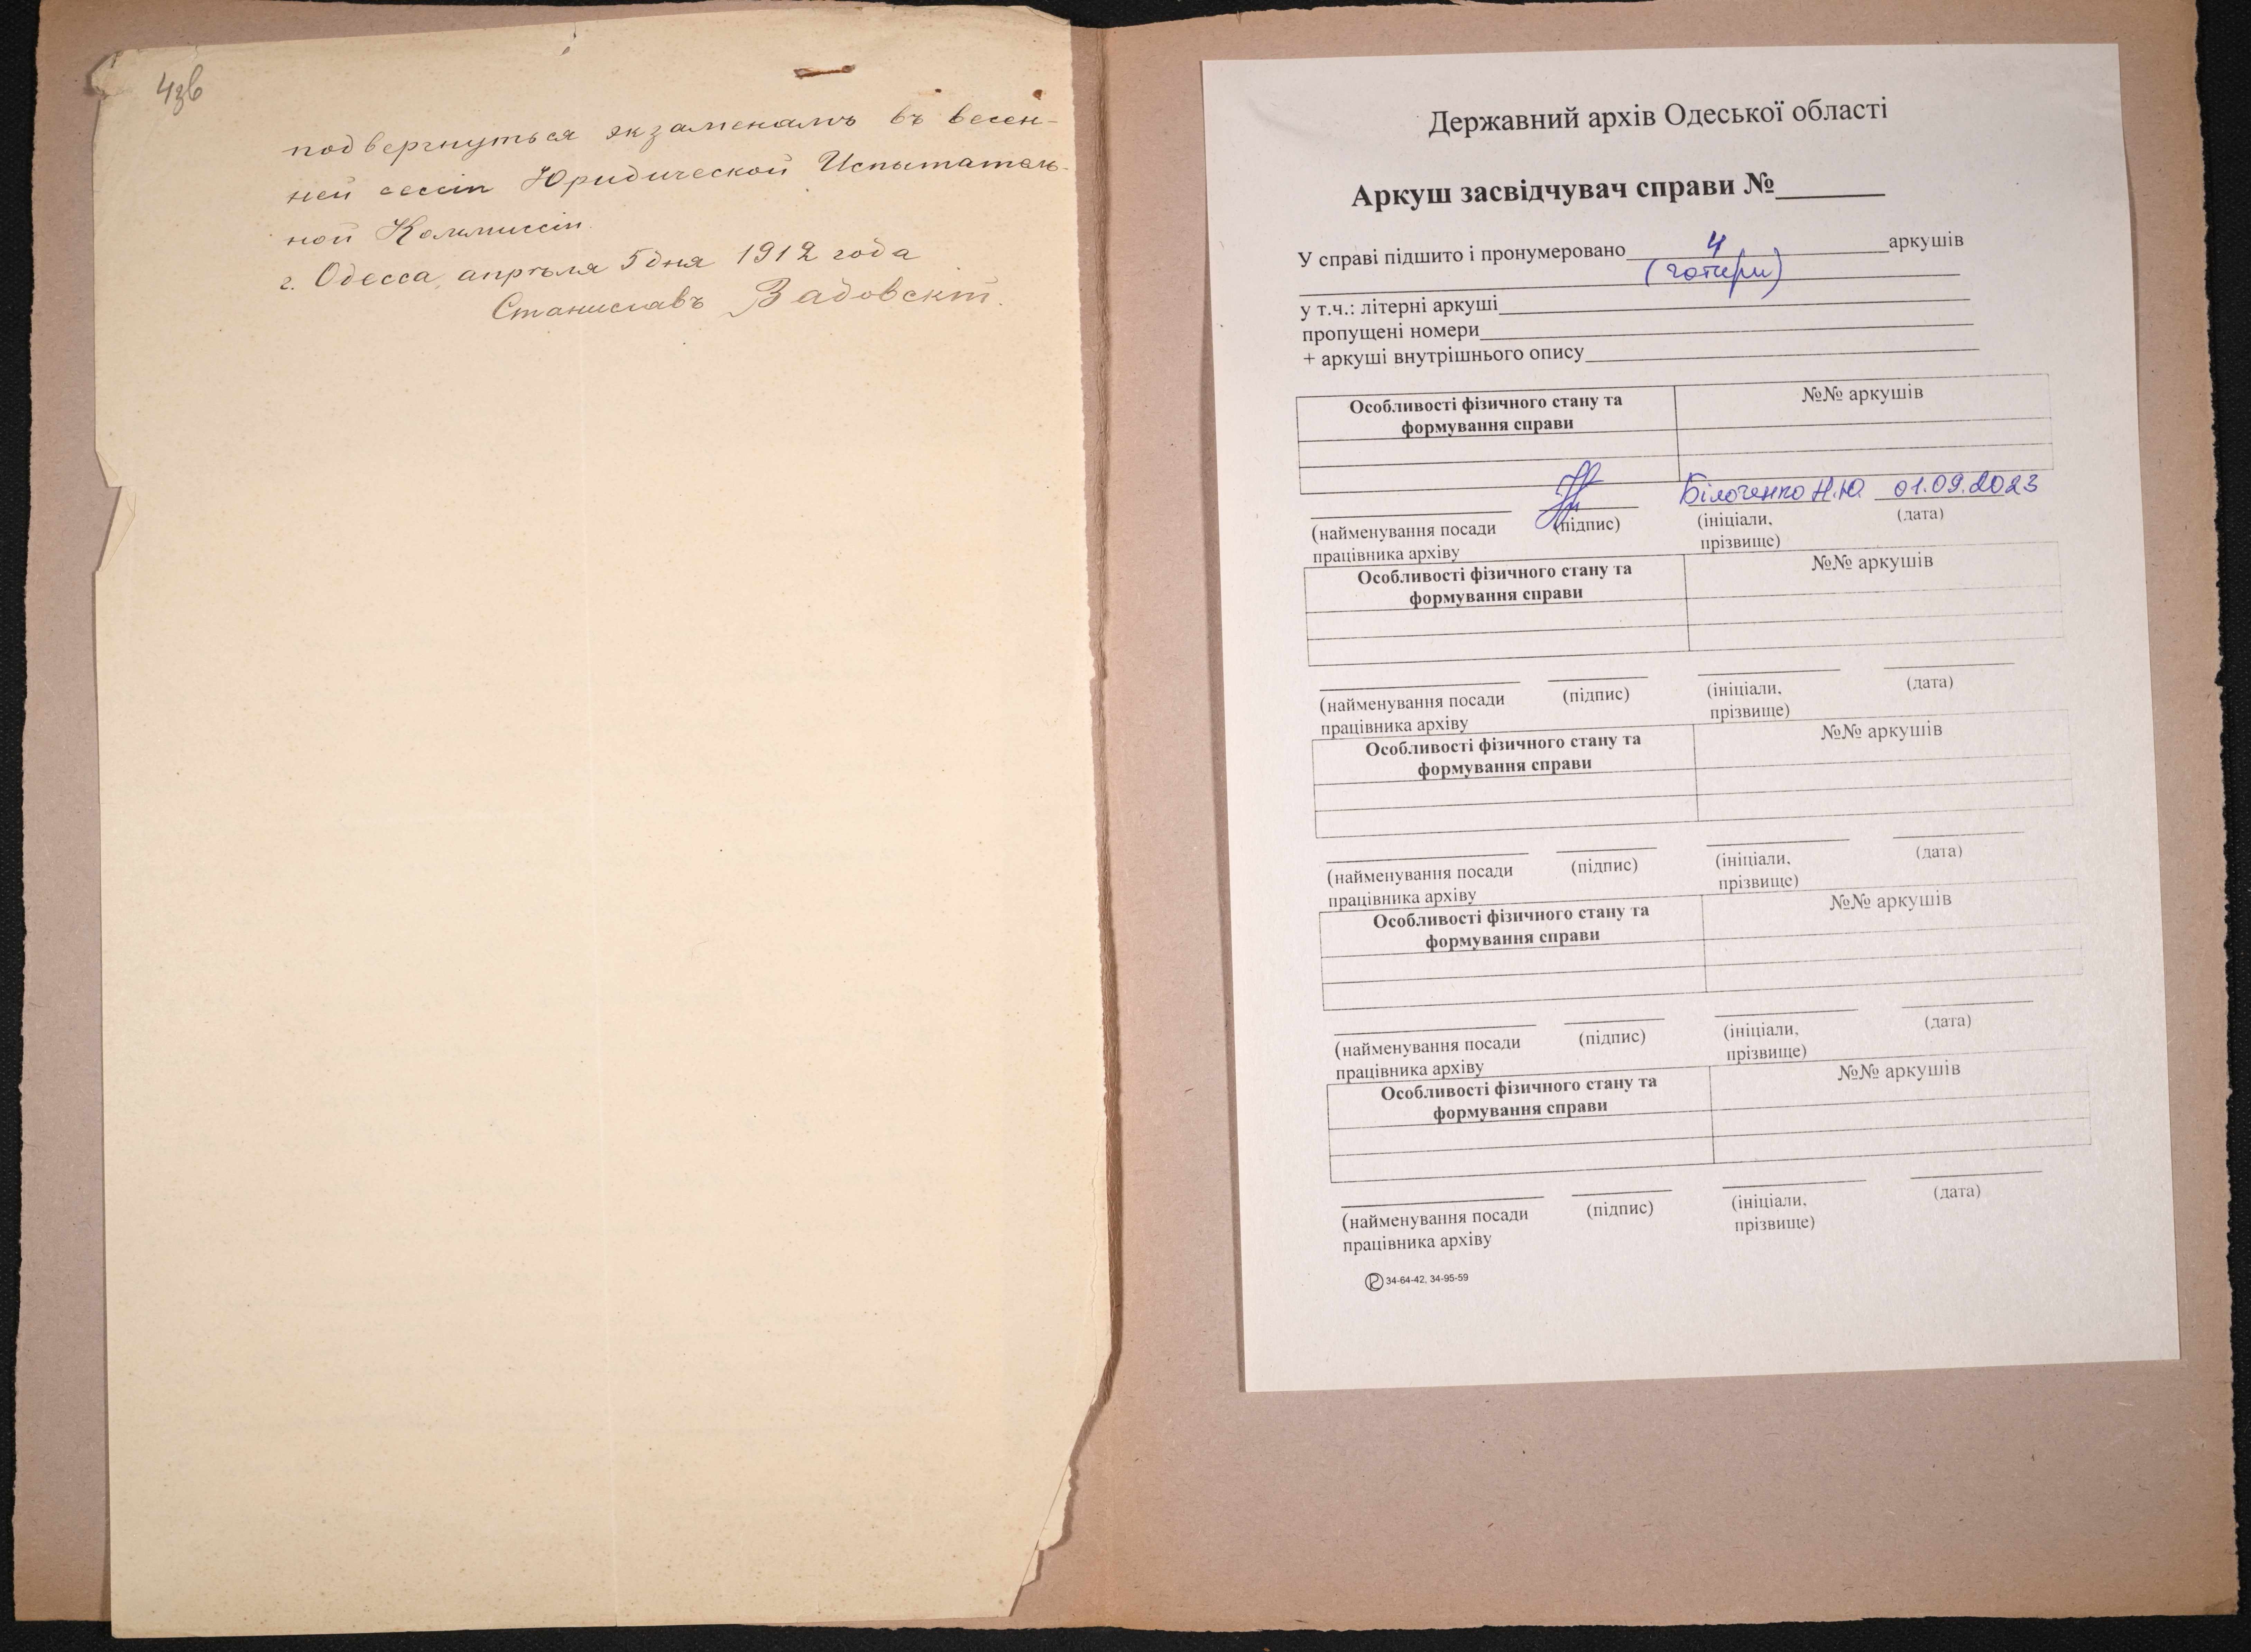 4зв
подвергнуться экзаменамъ въ весен-
ней сессіи Юридической Испытатель-
ной Коммиссіи.
г. Одесса, апрѣля 5 дня 1912 года
Станиславъ Задовскій.
Державний архів Одеської області
Аркуш засвідчувач справи №______
У справі підшито і пронумеровано 4 аркушів
(чотири)
у т.ч.: літерні аркуші
пропущені номери
+ аркуші внутрішнього опису
Особливості фізичного стану та формування справи №№ аркушів
Білоченко Н.Ю. 01.09.2023
(найменування посади (підпис) (ініціали, (дата)
працівника архіву прізвище)
Особливості фізичного стану та формування справи №№ аркушів
(найменування посади (підпис) (ініціали, (дата)
працівника архіву прізвище)
Особливості фізичного стану та формування справи №№ аркушів
(найменування посади (підпис) (ініціали, (дата)
працівника архіву прізвище)
Особливості фізичного стану та формування справи №№ аркушів
(найменування посади (підпис) (ініціали, (дата)
працівника архіву прізвище)
Особливості фізичного стану та формування справи №№ аркушів
(найменування посади (підпис) (ініціали, (дата)
працівника архіву прізвище)
34-64-42, 34-95-59